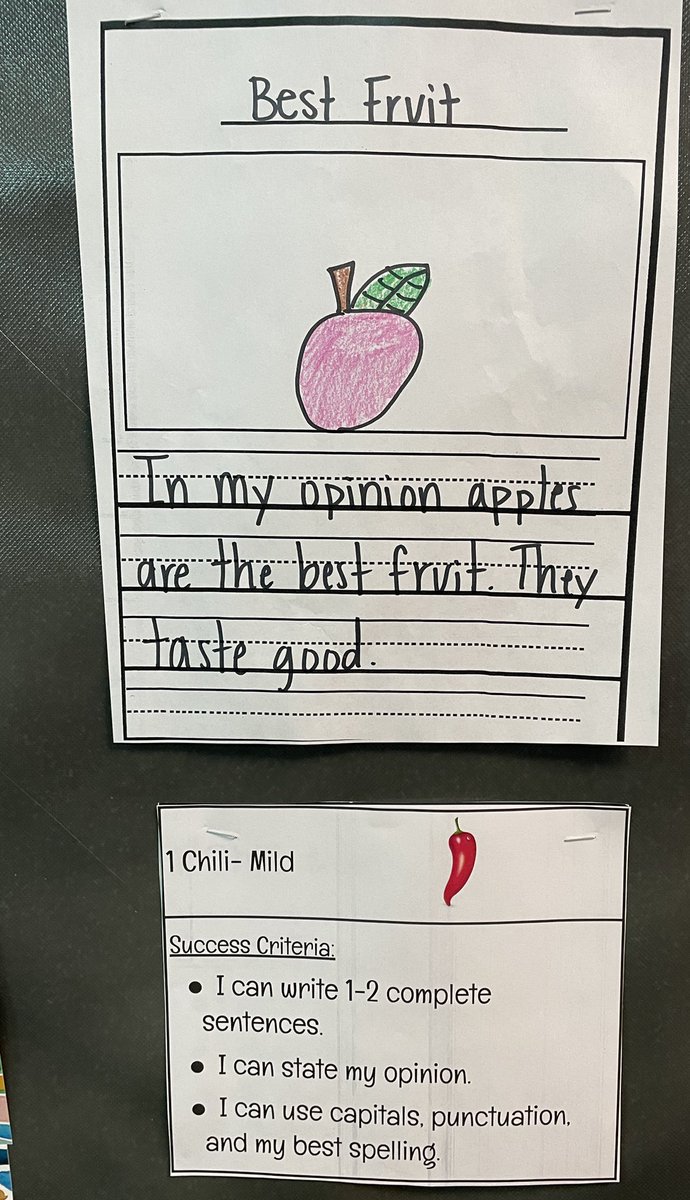 Best Fruit
In my opinion apples
are the best fruit. They
taste good.
1 Chili- Mild
Success Criteria:
● I can write 1-2 complete
sentences.
● I can state my opinion.
● I can use capitals, punctuation,
and my best spelling.